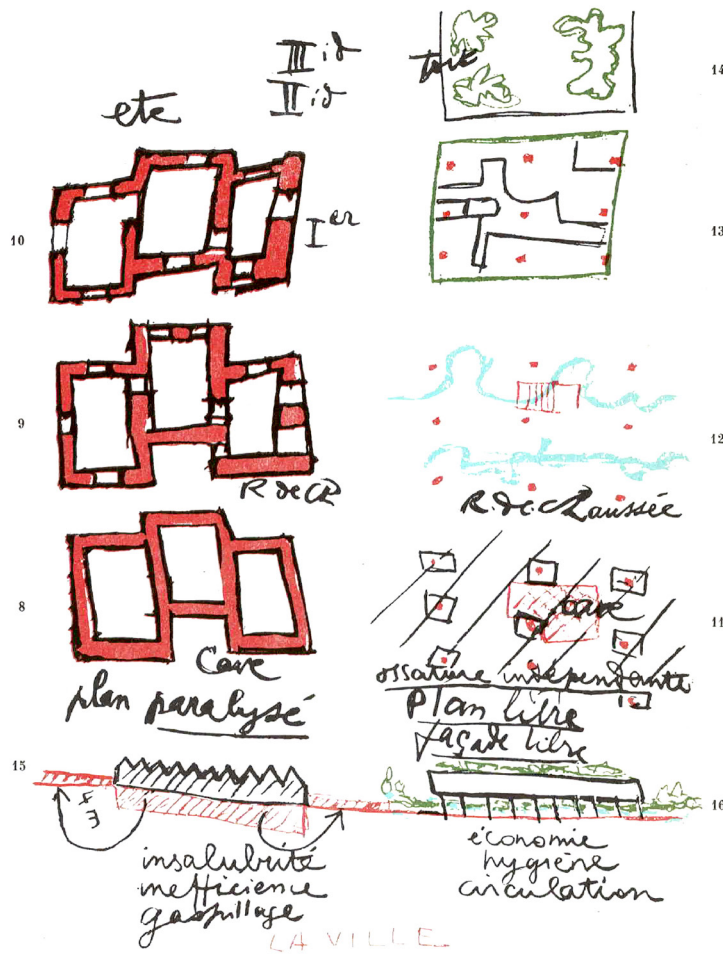 III id
II id
etc
toit
14
10
Ier
13
9
R de CH
12
R.de.chaussée
8
Cave
cave
11
plan paralysé
ossature indépendante
Plan libre
façade libre
15
16
insalubrité
inefficience
gaspillage
économie
hygiène
circulation
LA VILLE